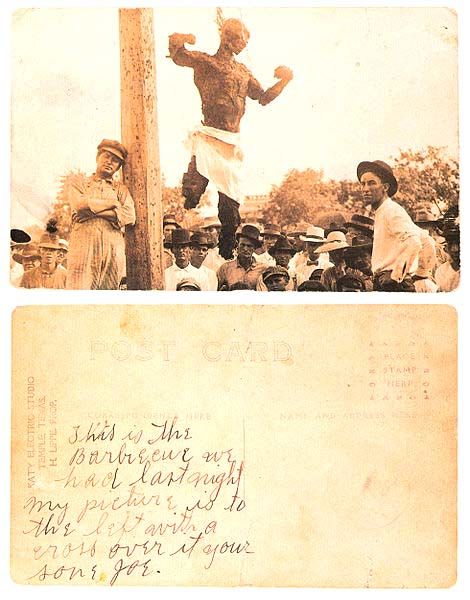 POST CARD
PLACE
STAMP
HERE
CORRESPONDENCE HERE
NAME AND ADDRESS HERE
KATY ELECTRIC STUDIO
TEMPLE TEXAS.
H. LIPPE PROP.
This is the
Barbecue we
had last night
my picture is to
the left with a
cross over it your
sone Joe.